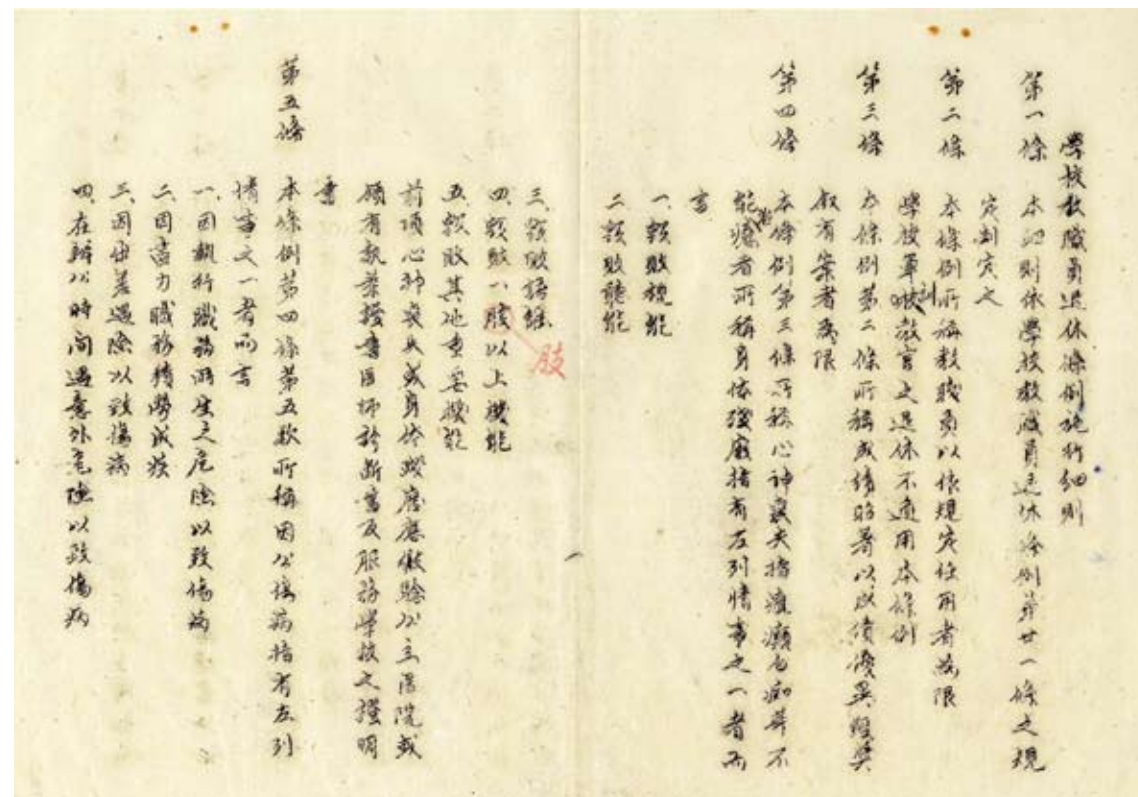 學校教職員退休條例施行細則
第一條 本細則依學校教職員退休條例第廿一條之規
定制定之
第二條 本條例所稱教職員以依規定任用者為限
學校軍訓教官之退休不適用本條例
第三條 本條例第二條所稱成績昭著以成績優異經獎
敘有案者為限
第四條 本條例第三條所稱心神喪失指瘋癲白痴等不
能治癒者所稱身體殘廢指有左列情事之一者而
言
一、毀敗視能
二、毀敗聽能
三、毀敗語能
四、毀敗一肢以上機能
肢
五、毀敗其他重要機能
前項心神喪失或身體殘廢應繳驗公立醫院或
領有執業證書醫師診斷書及服務學校之證明
書
第五條 本條例第四條第五款所稱因公傷病指有左列
情事之一者而言
一、因執行職務所生之危險以致傷病
二、因盡力職務積勞成疾
三、因出差遇險以致傷病
四、在辦公時間遇意外危險以致傷病